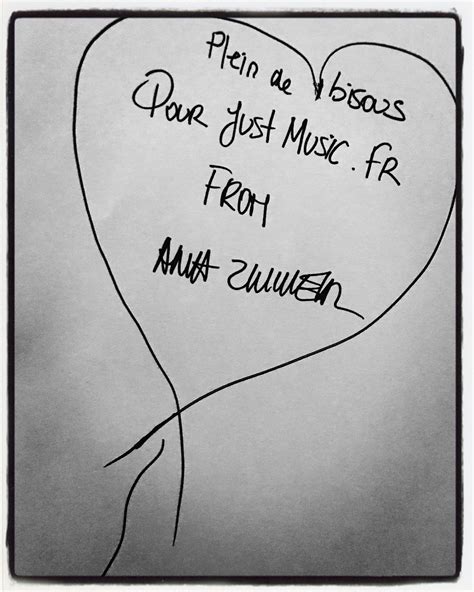 Plein de bisous
Pour Just Music.FR
FROM
ANA